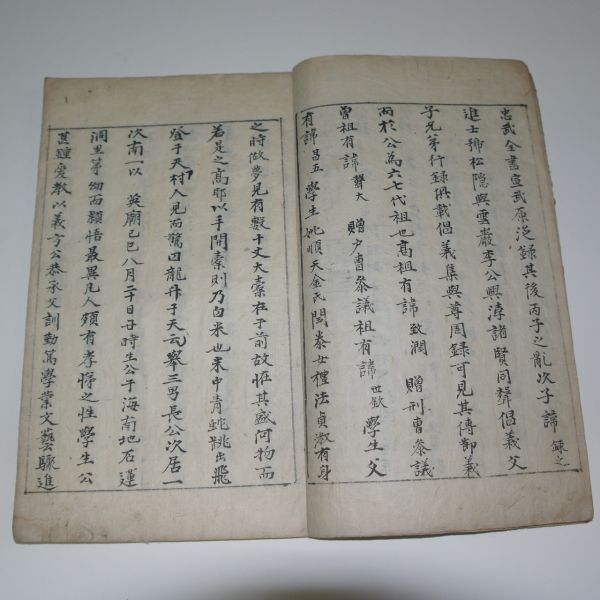 忠武全書宣武原從錄其後丙子之亂次子諱鍊之
進士號松隱與雲巖李公興浡諸賢同聲倡義父
子兄弟行錄俱載倡義集與尊周錄可見其傳鄉義
而於公為六七代祖也高祖有諱致潤 贈刑曹參議
曾祖有諱聲大 贈戶曹參議祖有諱世欽學生父
有諱昌五學生妣順天金氏閔泰女禮法貞淑有身
之時做夢見有數十丈大橐在于前故恠其盛何物而
若是之高耶以手開橐則乃白米也米中青蛇跳出飛
登于天村人見而驚曰龍升于天云舉三男長公次居一
次南一以 英廟己巳八月二十日子時生公于海南地石運
洞里第幼而穎悟最異凡人頗有孝悌之性學生公
甚鍾愛教以義方公恭承父訓勤篤學業文藝驟進